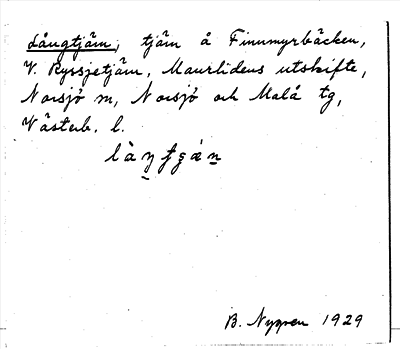 Långtjärn, tjärn å Finnmyrbäcken,
V. Ryssjetjärn, Maurlidens utskifte,
Norsjö sn, Norsjö och Malå tg,
Västerb. l.
B. Nygren 1929